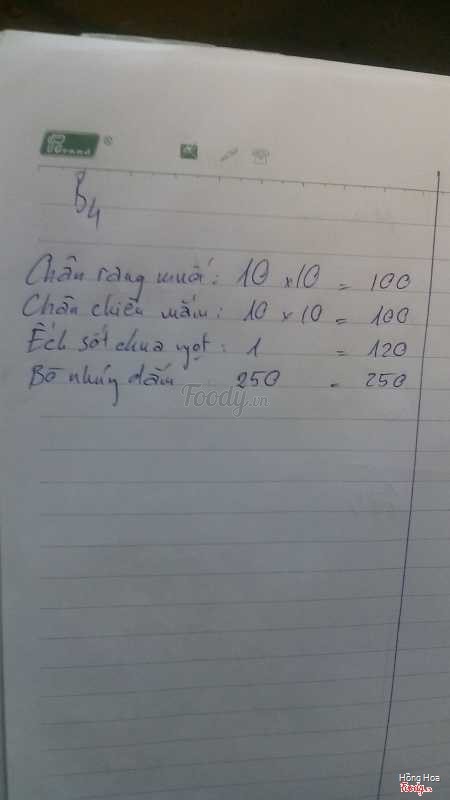 Brand ®
B4
Chân rang muối: 10 x 10 = 100
Chân chiên mắm: 10 x 10 = 100
Ếch sốt chua ngọt: 1 = 120
Bò nhúng dấm 250 = 250
Foody.vn
Hồng Hoa
Foody.vn